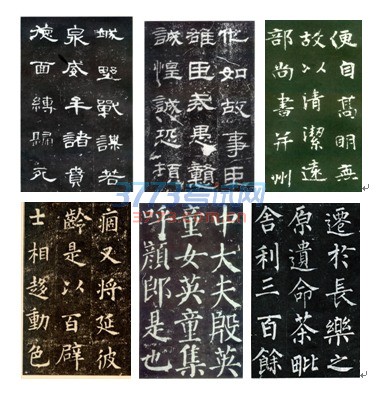 城野戰謀若
泉威牟諸賁
面縛歸死
化如故事臣
雄臣戒愚戇
誠惶誠恐頓
便自髙明無
故以清潔遠
部尚書并州
3773考试网
痼又將延彼
齡是以百辟
士相趍動色
中大夫殷英
童女英童集
呼顏郎是也
遷於長樂之
原遺命茶毗
舍利三百餘